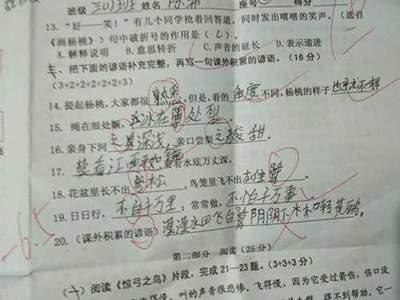 班级 三(1)班 姓名 座号
13. “好——笑！”有几个同学抢着回答道，同时发出嘻嘻的笑声。(选自
《画杨桃》)句中破折号的作用是( C )。
A. 解释说明 B. 意思转折 C. 声音的延长 D. 表示递进
五、把下面的谚语补充完整，再写一句课外积累的谚语。(16分)
(3+2+2+2+2+2+3)
14. 提起杨桃，大家都很熟悉，但是，看的角度不同，杨桃的样子也就不一样
15. 绳在细处断，冰在薄处裂
16. 亲身下河知深浅，亲口尝梨知酸甜。
17. 水底万丈深。
18. 花盆里长不出苍松，鸟笼里飞不出雄鹰
19. 日日行，不怕千万里，常常做，不怕千万事
20. (课外积累的谚语)漠漠水田飞白鹭阴阴下木转黄鹂。
-6.5
第二部分 阅读(25分)
(一)阅读《惊弓之鸟》片段，完成21—23题。(3+3+3分)
得慢，叫的声音很悲惨。飞得慢，因为它受过箭伤，伤口没